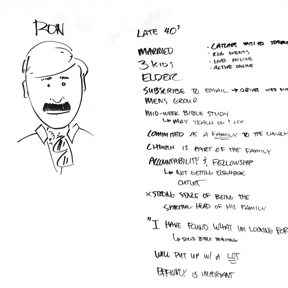 RON
LATE 40'S
MARRIED
3 KIDS
ELDER
SUBSCRIBE TO EMAIL → DRIVES WEB
MENS GROUP
MID-WEEK BIBLE STUDY
↳ MAY TEACH ON
COMMITTED AS A FAMILY TO THE CHURCH
CHURCH IS PART OF THE FAMILY
ACCOUNTABILITY & FELLOWSHIP
↳ NOT GETTING ELSEWHERE
OUTLET
STRONG SENSE OF BEING THE
SPIRITUAL HEAD OF HIS FAMILY
"I HAVE FOUND WHAT IM LOOKING FOR
↳ SOLID BIBLE TEACHING
WILL PUT UP W/ A LOT
EFFICIENCY IS IMPORTANT